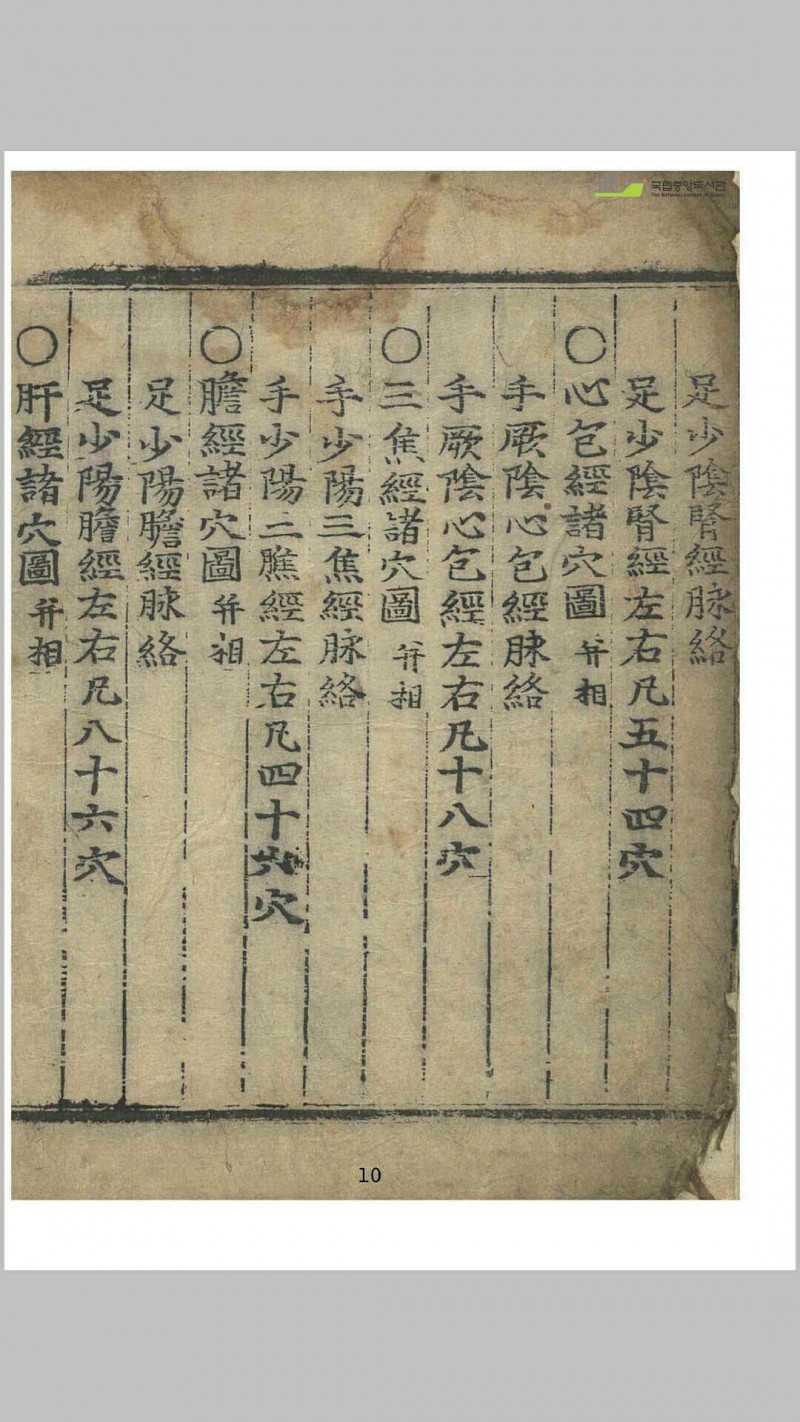 국립중앙도서관
THE NATIONAL LIBRARY OF KOREA
足少陰腎經脉絡
足少陰腎經左右凡五十四穴
〇心包經諸穴圖 并相
手厥陰心包經脉絡
手厥陰心包經左右凡十八穴
〇三焦經諸穴圖 并相
手少陽三焦經脉絡
手少陽三膲經左右凡四十六穴
〇膽經諸穴圖 并相
足少陽膽經脉絡
足少陽膽經左右凡八十六穴
〇肝經諸穴圖 并相
10